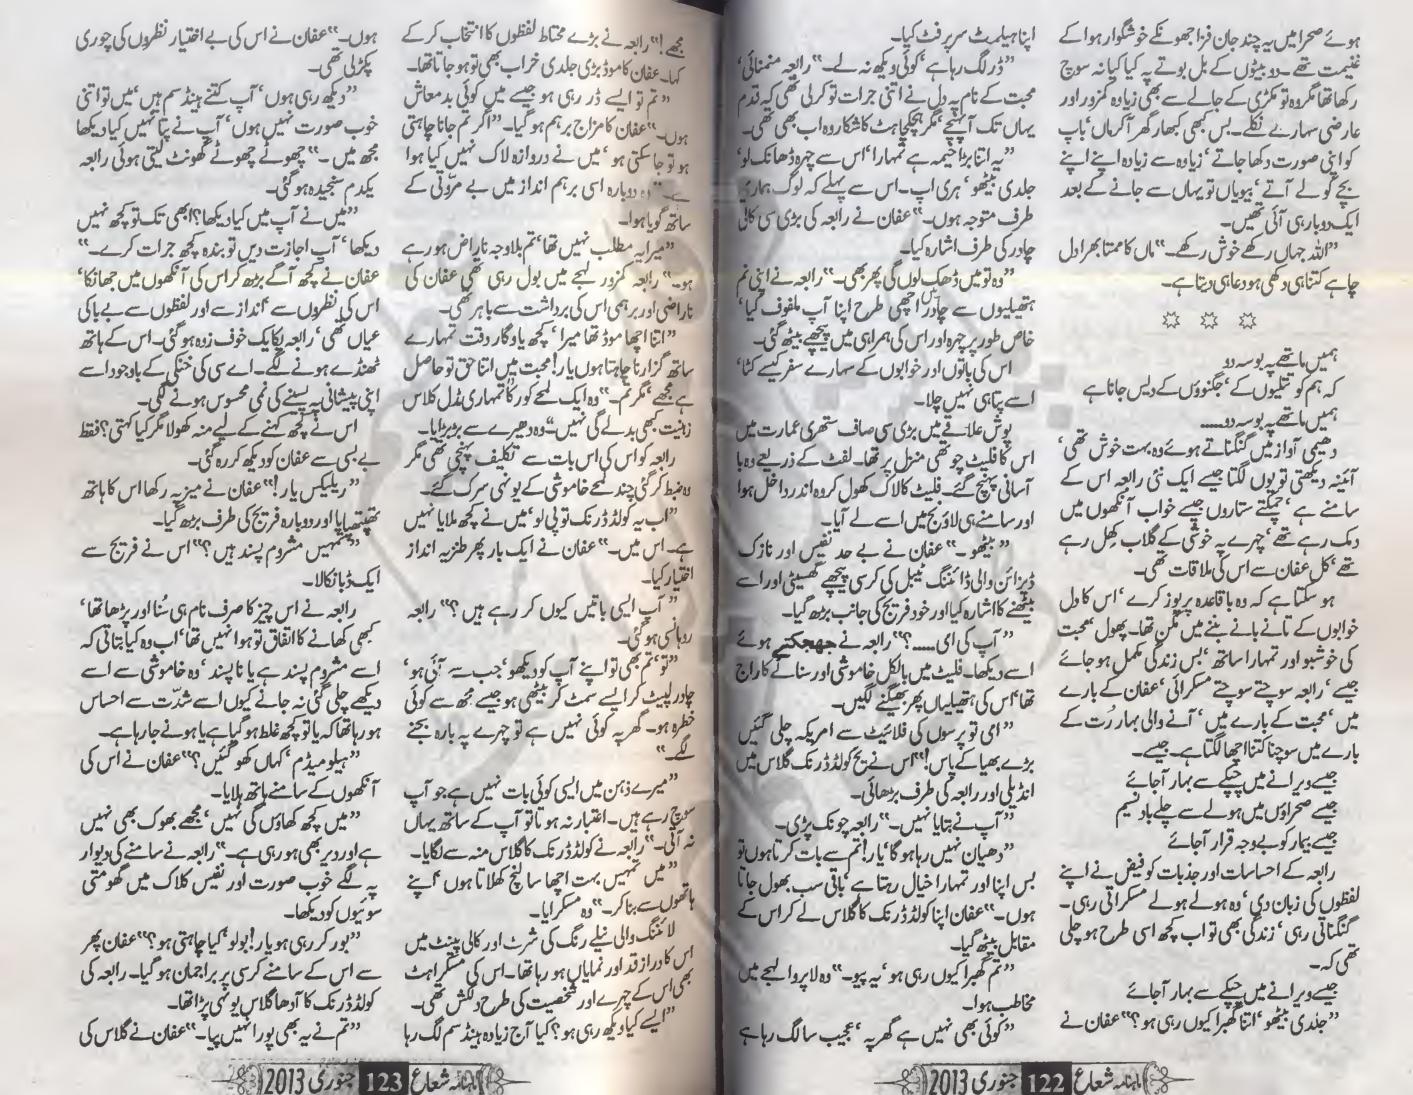 ہوئے صحرا میں یہ چند جان فزا جھونکے خوشگوار ہوا کے
غنیمت تھے۔ دو بیٹوں کے بل بوتے پہ کیا کیا نہ سوچ
رکھا تھا مگر وہ تو مکڑی کے جالے سے بھی زیادہ کمزور اور
عارضی سہارے نکلے۔ بس بھی کبھار گھر آ کر ماں، باپ
کو اپنی صورت دکھا جاتے، زیادہ سے زیادہ اپنے اپنے
بچے کو لے آتے، بیویاں تو یہاں سے جانے کے بعد
ایک دو بار ہی آئی تھیں۔
”اللہ جہاں رکھے خوش رکھے۔“ ماں کا ممتا بھرا دل
چاہے کتنا ہی دکھی ہو دعا ہی دیتا ہے۔
☼ ☼ ☼
ہمیں ماتھے پہ بوسہ دو
کہ ہم کو تتلیوں کے، جگنوؤں کے دیس جانا ہے
ہمیں ماتھے پہ بوسہ دو.....
دھیمی آواز میں گنگناتے ہوئے وہ بہت خوش تھی،
آئینہ دیکھتی تو یوں لگتا جیسے ایک نئی رابعہ اس کے
سامنے ہے، چمکتے ستاروں جیسے خواب آنکھوں میں
دمک رہے تھے، چہرے پہ خوشی کے گلاب کھل رہے
تھے، کل عفان سے اس کی ملاقات تھی۔
ہو سکتا ہے کہ وہ باقاعدہ پرپوز کرے، اس کا دل
خوابوں کے تانے بانے بننے میں مگن تھا۔ پھول، محبت
کی خوشبو اور تمہارا ساتھ، بس زندگی مکمل ہو جائے
جیسے، رابعہ سوچتے سوچتے مسکرائی، عفان کے بارے
میں، محبت کے بارے میں، آنے والی بہار رُت کے
بارے میں سوچنا کتنا اچھا لگتا ہے۔ جیسے۔
جیسے ویرانے میں چپکے سے بہار آجائے
جیسے صحراؤں میں ہولے سے چلے باد نسیم
جیسے بیمار کو بے وجہ قرار آجائے
رابعہ کے احساسات اور جذبات کو فیض نے اپنے
لفظوں کی زبان دی، وہ ہولے ہولے مسکراتی رہی۔
گنگناتی رہی، زندگی بھی تو اب کچھ اسی طرح ہو چلی
تھی کہ۔
جیسے ویرانے میں چپکے سے بہار آجائے
”جلدی بیٹھو، اتنا گھبرا کیوں رہی ہو؟“ عفان نے
اپنا ہیلمٹ سر پر فٹ کیا۔
”ڈر لگ رہا ہے، کوئی دیکھ نہ لے۔“ رابعہ منمنائی،
محبت کے نام پہ دل نے اتنی جرات تو کرلی تھی کہ قدم
یہاں تک آ پہنچے، مگر ہچکچاہٹ کا شکار وہ اب بھی تھی۔
”یہ اتنا بڑا خیمہ ہے تمہارا، اس سے چہرہ ڈھانک لو،
جلدی بیٹھو، ہری اپ۔ اس سے پہلے کہ لوگ ہماری
طرف متوجہ ہوں۔“ عفان نے رابعہ کی بڑی سی کالی
چادر کی طرف اشارہ کیا۔
”وہ تو میں ڈھک لوں گی پھر بھی۔“ رابعہ نے اپنی نم
ہتھیلیوں سے چادر اچھی طرح اپنا آپ ملفوف کیا،
خاص طور پر چہرہ اور اس کی ہمراہی میں پیچھے بیٹھ گئی۔
اس کی باتوں اور خوابوں کے سہارے سفر کیسے کٹا،
اسے پتا ہی نہیں چلا۔
پوش علاقے میں بڑی سی صاف ستھری عمارت میں
اس کا فلیٹ چوتھی منزل پر تھا۔ لفٹ کے ذریعے وہ با
آسانی پہنچ گئے۔ فلیٹ کا لاک کھول کر وہ اندر داخل ہوا
اور سامنے ہی لاؤنج میں اسے لے آیا۔
”بیٹھو۔“ عفان نے بے حد نفیس اور نازک
ڈیزائن والی ڈائننگ ٹیبل کی کرسی پیچھے گھسیٹی اور اسے
بیٹھنے کا اشارہ کیا اور خود فریج کی جانب بڑھ گیا۔
”آپ کی امی.....؟“ رابعہ نے جھجکتے ہوئے
اسے دیکھا۔ فلیٹ میں بالکل خاموشی اور سناٹے کا راج
تھا، اس کی ہتھیلیاں پھر بھیگنے لگیں۔
”امی تو پرسوں کی فلائیٹ سے امریکہ چلی گئیں
بڑے بھیا کے پاس!“ اس نے یخ کولڈ ڈرنک گلاس میں
انڈیلی اور رابعہ کی طرف بڑھائی۔
”آپ نے بتایا نہیں۔“ رابعہ چونک پڑی۔
”دھیان نہیں رہا ہو گا، یار! تم سے بات کرتا ہوں تو
بس اپنا اور تمہارا خیال رہتا ہے، باقی سب بھول جاتا
ہوں۔“ عفان اپنا کولڈ ڈرنک کا گلاس لے کر اس کے
مقابل بیٹھ گیا۔
”تم گھبرا کیوں رہی ہو، یہ پیو۔“ وہ لاپروا لہجے میں
مخاطب ہوا۔
”کوئی بھی نہیں ہے گھر پہ، عجیب سا لگ رہا ہے
ماہنامہ شعاع 122 جنوری 2013
مجھے!“ رابعہ نے بڑے محتاط لفظوں کا انتخاب کر کے
کہا۔ عفان کا موڈ بڑی جلدی خراب بھی تو ہو جاتا تھا۔
”تم تو ایسے ڈر رہی ہو جیسے میں کوئی بدمعاش
ہوں۔“ عفان کا مزاج برہم ہو گیا۔ ”اگر تم جانا چاہتی
ہو تو جا سکتی ہو، میں نے دروازہ لاک نہیں کیا ہوا
ہے۔“ وہ دوبارہ اسی برہم انداز میں بے مروّتی کے
ساتھ گویا ہوا۔
”میرا یہ مطلب نہیں تھا، تم بلاوجہ ناراض ہو رہے
ہو۔“ رابعہ کمزور لہجے میں بول رہی تھی عفان کی
ناراضی اور برہمی اس کی برداشت سے باہر تھی۔
”اتنا اچھا موڈ تھا میرا، کچھ یادگار وقت تمہارے
ساتھ گزارنا چاہتا ہوں یار! محبت میں اتنا حق تو حاصل
ہے مجھے، مگر تم۔“ وہ ایک لمحے کو رکا، تمہاری مڈل کلاس
ذہنیت کبھی بدلے گی نہیں۔“ وہ دھیرے سے بڑبڑایا۔
رابعہ کو اس کی اس بات سے تکلیف پہنچی تھی مگر
وہ ضبط کر گئی چند لمحے خاموشی کے یونہی سرک گئے۔
”اب یہ کولڈ ڈرنک تو پی لو، میں نے کچھ ملایا نہیں
ہے۔ اس میں۔“ عفان نے ایک بار پھر طنزیہ انداز
اختیار کیا۔
”آپ ایسی باتیں کیوں کر رہے ہیں؟“ رابعہ
روہانسی ہو گئی۔
”تو، تم بھی تو اپنے آپ کو دیکھو، جب سے آئی ہو،
چادر لپیٹ کر ایسے سمٹ کر بیٹھی ہو جیسے مجھ سے کوئی
خطرہ ہو۔ گھر پہ کوئی نہیں ہے تو چہرے پہ بارہ بجنے
لگے۔“
”میرے ذہن میں ایسی کوئی بات نہیں ہے جو آپ
سوچ رہے ہیں۔ اعتبار نہ ہوتا تو آپ کے ساتھ یہاں
نہ آتی۔“ رابعہ نے کولڈ ڈرنک کا گلاس منہ سے لگایا۔
”میں تمہیں بہت اچھا سا لنچ کھلاتا ہوں، اپنے
ہاتھوں سے بنا کر۔“ وہ مسکرایا۔
لائننگ والی نیلے رنگ کی شرٹ اور کالی پینٹ میں
اس کا دراز قد اور نمایاں ہو رہا تھا۔ اس کی مسکراہٹ
بھی اس کے چہرے اور شخصیت کی طرح دلکش تھی۔
”ایسے کیا دیکھ رہی ہو؟ کیا آج زیادہ ہینڈسم لگ رہا
ہوں۔“ عفان نے اس کی بے اختیار نظروں کی چوری
پکڑلی تھی۔
”دیکھ رہی ہوں، آپ کتنے ہینڈسم ہیں، میں تو اتنی
خوب صورت نہیں ہوں، آپ نے پتا نہیں کیا دیکھا
مجھ میں۔“ چھوٹے چھوٹے گھونٹ لیتی ہوئی رابعہ
یکدم سنجیدہ ہو گئی۔
”میں نے آپ میں کیا دیکھا؟ ابھی تک تو کچھ نہیں
دیکھا، آپ اجازت دیں تو بندہ کچھ جرات کرے۔“
عفان نے کچھ آگے بڑھ کر اس کی آنکھوں میں جھانکا،
اس کی نظروں سے، انداز سے اور لفظوں سے بے باکی
عیاں تھی، رابعہ یکایک خوف زدہ ہو گئی۔ اس کے ہاتھ
ٹھنڈے ہونے لگے۔ اے سی کی خنکی کے باوجود اسے
اپنی پیشانی پہ پسینے کی نمی محسوس ہونے لگی۔
اس نے کچھ کہنے کے لیے منہ کھولا مگر کیا کہتی؟ فقط
بے بسی سے عفان کو دیکھ کر رہ گئی۔
”ریلیکس یار!“ عفان نے میز پہ رکھا اس کا ہاتھ
تھپتھپایا اور دوبارہ فریج کی طرف بڑھ گیا۔
”تمہیں مشروم پسند ہیں؟“ اس نے فریج سے
ایک ڈبا نکالا۔
رابعہ نے اس چیز کا صرف نام ہی سُنا اور پڑھا تھا،
کبھی کھانے کا اتفاق تو ہوا نہیں تھا، اب وہ کیا بتاتی کہ
اسے مشروم پسند ہے یا ناپسند، وہ خاموشی سے اسے
دیکھے چلی گئی نہ جانے کیوں اسے شدّت سے احساس
ہو رہا تھا کہ یا تو کچھ غلط ہو گیا ہے یا ہونے جا رہا ہے۔
”ہیلو میڈم، کہاں کھو گئیں؟“ عفان نے اس کی
آنکھوں کے سامنے ہاتھ ہلایا۔
”میں کچھ کھاؤں گی نہیں، مجھے بھوک بھی نہیں
ہے اور دیر بھی ہو رہی ہے۔“ رابعہ نے سامنے کی دیوار
پہ لگے خوب صورت اور نفیس کلاک میں گھومتی
سوئیوں کو دیکھا۔
”بور کر رہی ہو یار! بولو، کیا چاہتی ہو؟“ عفان پھر
سے اس کے سامنے کرسی پر براجمان ہو گیا۔ رابعہ کی
کولڈ ڈرنک کا آدھا گلاس یونہی پڑا تھا۔
”تم نے یہ بھی پورا نہیں پیا۔“ عفان نے گلاس کی
ماہنامہ شعاع 123 جنوری 2013